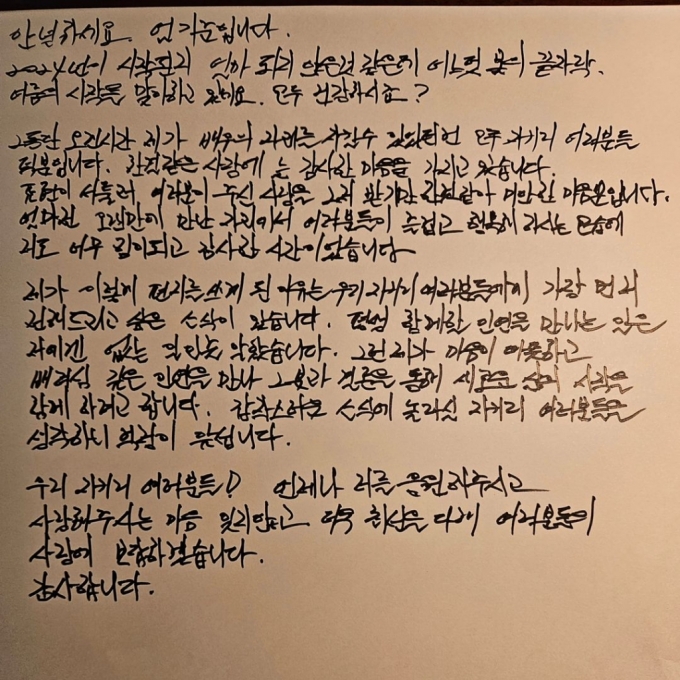 안녕하세요. 엄기준입니다.
2024년이 시작된지 얼마 되지 않은것 같은데 어느덧 봄의 끝자락.
여름의 시작을 맞이하고 있네요. 모두 건강하시죠?
그동안 오랜시간 제가 배우의 자리를 지킬수 있었던건 모두 자기리 여러분들
덕분입니다. 한결같은 사랑에 늘 감사한 마음을 가지고 있습니다.
표현이 서툴러 여러분이 주신 사랑을 그저 받기만 한것같아 미안한 마음뿐입니다.
얼마전 오랜만에 만난 자리에서 여러분들이 즐겁고 행복해 하시는 모습에
저도 너무 힘이되고 감사한 시간이었습니다
제가 이렇게 편지를 쓰게 된 이유는 우리 자기리 여러분들에게 가장 먼저
전해드리고 싶은 소식이 있습니다. 평생 함께할 인연을 만나는 일은
자에겐 없는 일인줄 알았습니다. 그런 제가 마음이 따뜻하고
배려심 깊은 인연을 만나 그분과 결혼을 통해 새로운 삶의 시작을
함께 하려고 합니다. 갑작스러운 소식에 놀라실 자기리 여러분들을
생각하니 걱정이 됩니다.
우리 자기리 여러분들! 언제나 저를 응원해주시고
사랑해주시는 마음 잊지않고 더욱 최선을 다해 여러분들의
사랑에 보답하겠습니다.
감사합니다.